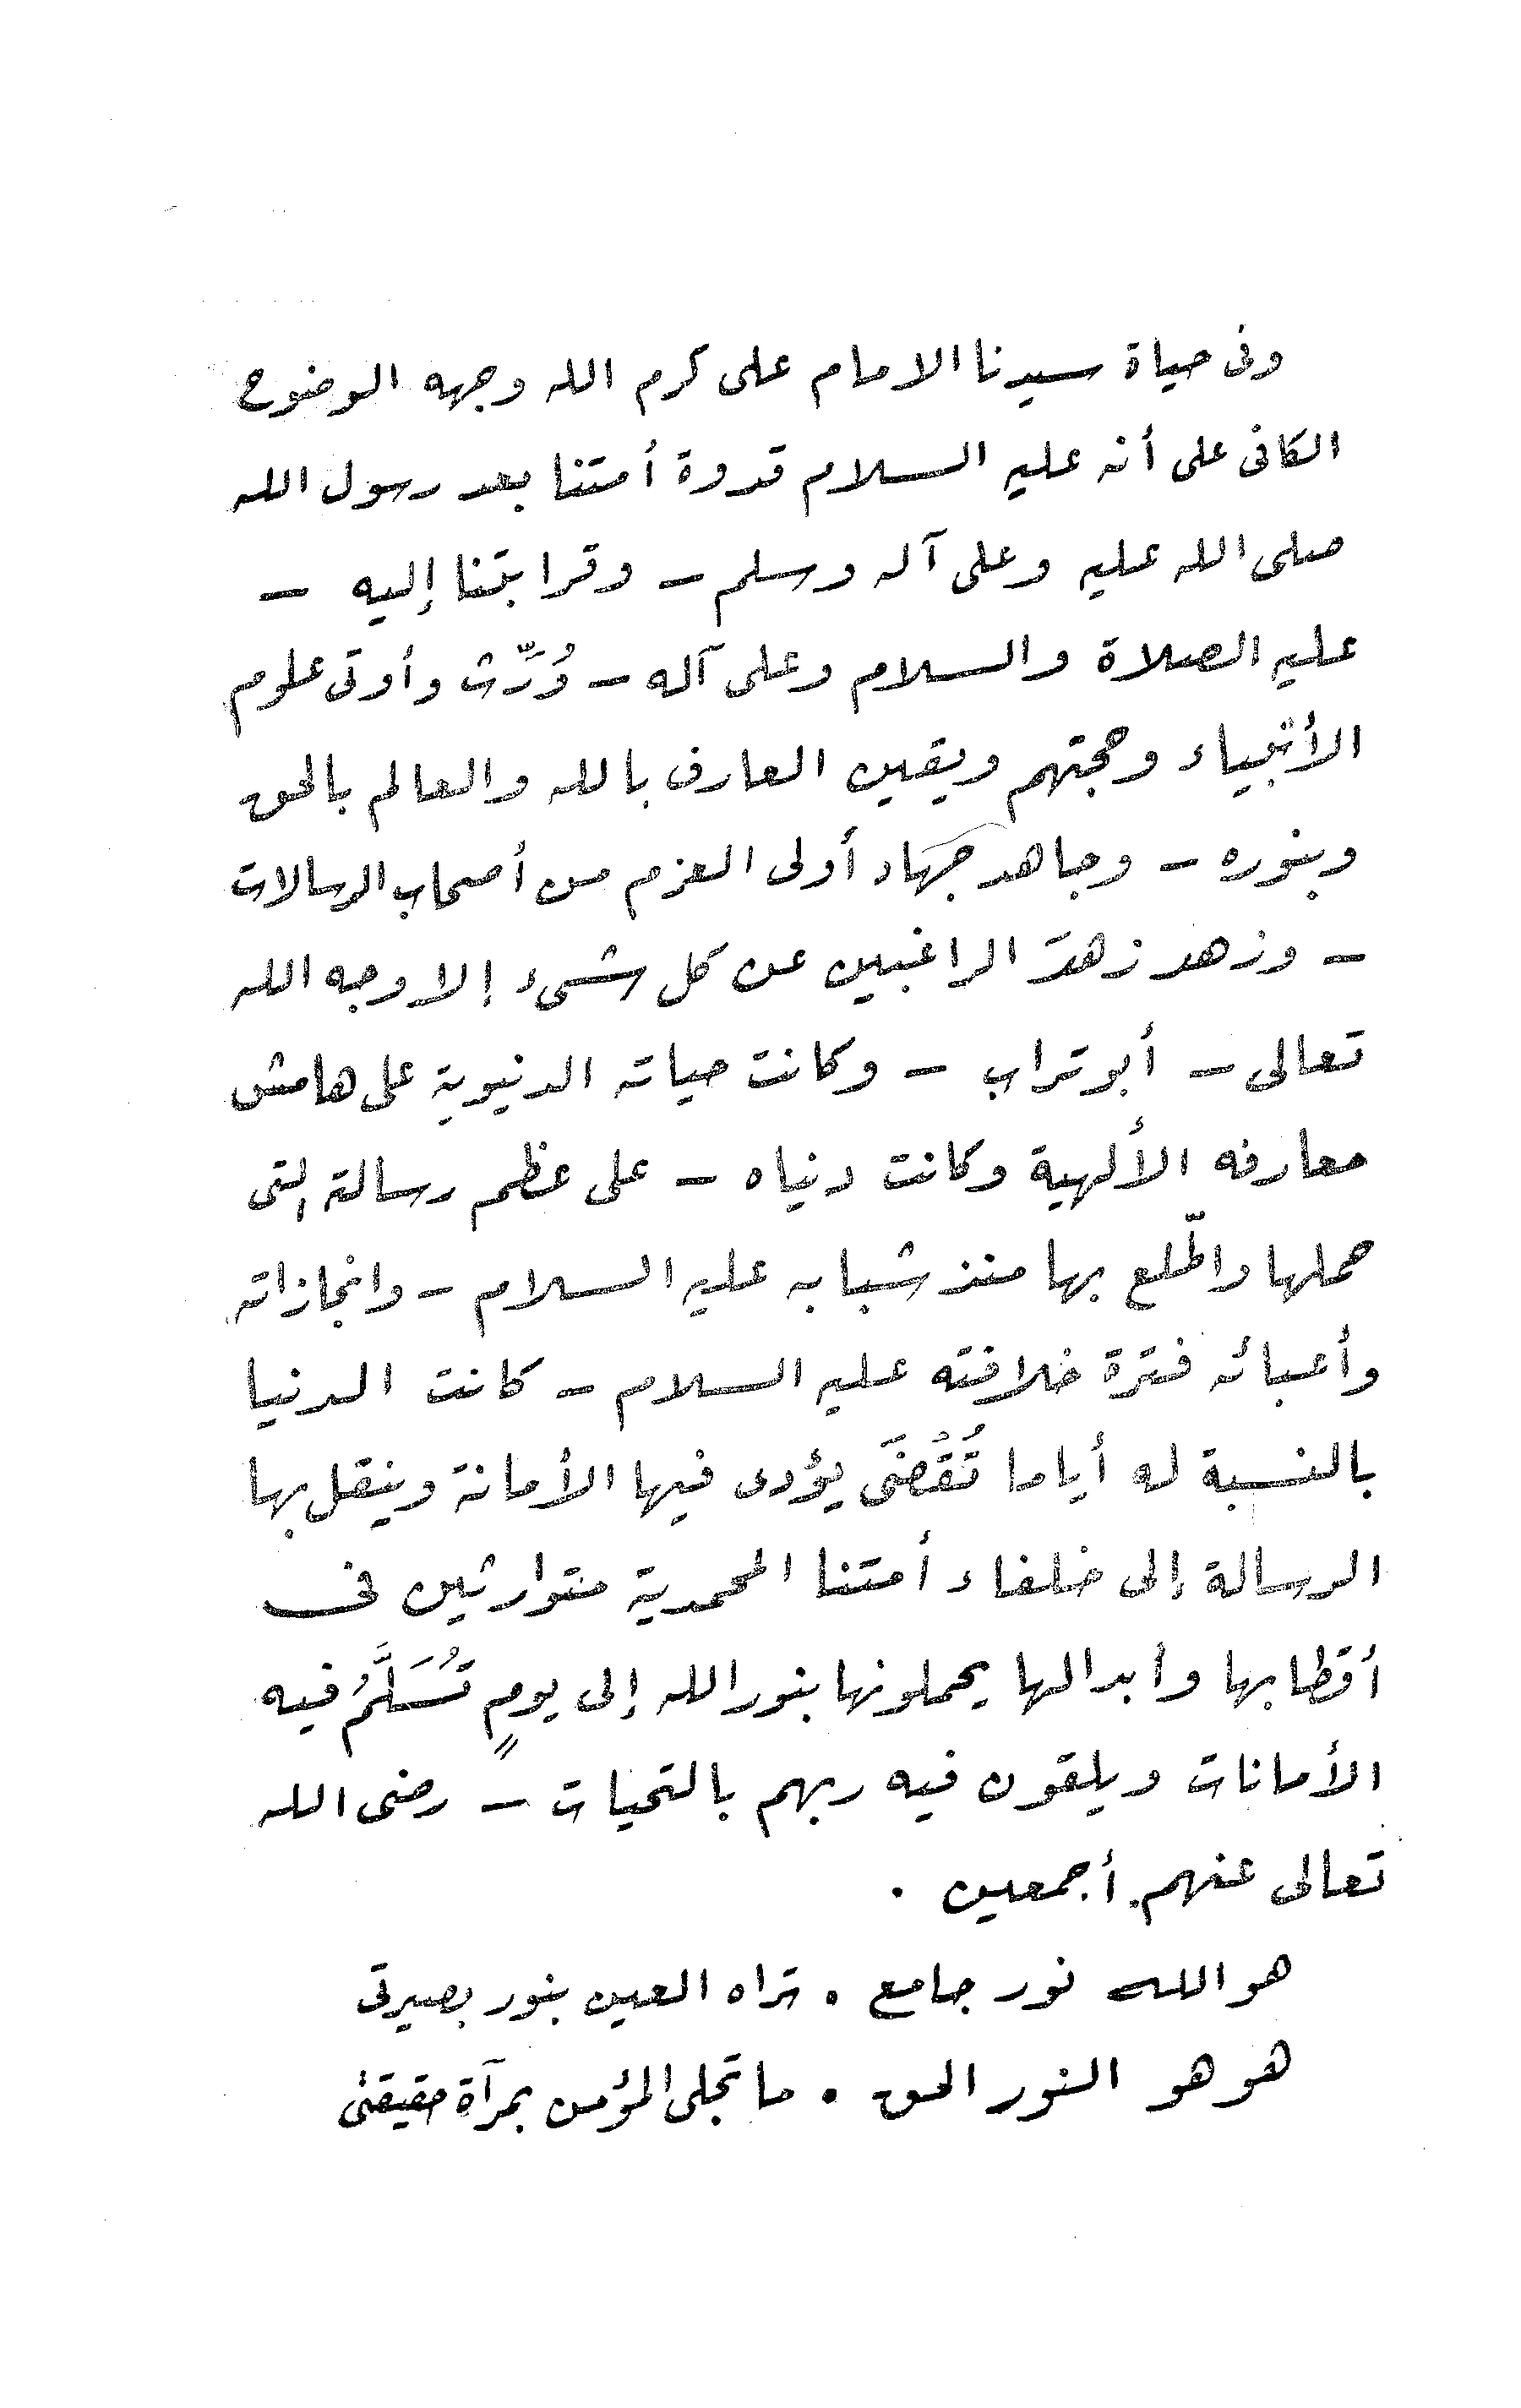 وفى حياة سيدنا الامام على كرم الله وجهه الوضوح
الكافى على أنه عليه السلام قدوة أمتنا بعد رسول الله
صلى الله عليه وعلى آله وسلم - وقرابتنا إليه -
عليه الصلاة والسلام وعلى آله - وُرِّث وأوتى علوم
الأنبياء وحجتهم ويقين العارف بالله والعالم بالحق
وبنوره - وجاهد جهاد أولى العزم من أصحاب الرسالات
- وزهد زهدَ الراغبين عن كل شىء إلا وجه الله
تعالى - أبو تراب - وكانت حياته الدنيوية على هامش
معارفه الألهية وكانت دنياه - على عظم رسالته التى
حملها واطّلع بها منذ شبابه عليه السلام - وانجازاته
وأعبائه فترة خلافته عليه السلام - كانت الدنيا
بالنسبة له أياما تُقْضَى يؤدى فيها الأمانة وينقل بها
الرسالة إلى خلفاء أمتنا المحمدية متوارثين فى
أقطابها وأبدالها يحملونها بنور الله إلى يومٍ تُسَلَّمُ فيه
الأمانات ويلقون فيه ربهم بالتحيات - رضى الله
تعالى عنهم أجمعين .
هو الله نور جامع . تراه العين بنور بصيرتى
هو هو النور الحق . ما تجلى المؤمن بمرآة حقيقتى